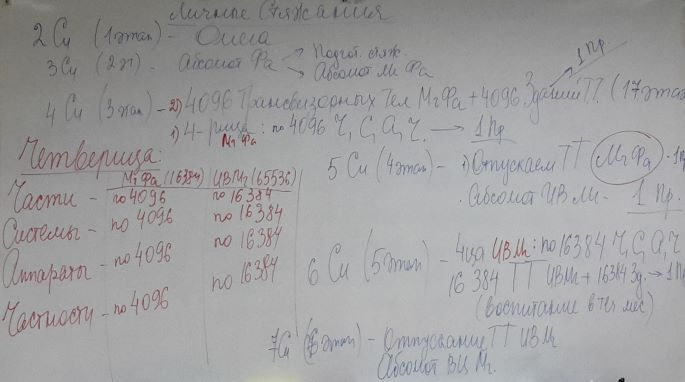 Личные Стяжания
2 Си (1 этап) - Омега
3 Си (2 э) - Абсолют Фа
Подгот. стяж.
Абсолют Мг Фа
1 Пр
4 Си (3 этап) - 2) 4096 Трансвизорных Тел МгФа + 4096 Зданий ТТ. (17 этаж
1) 4-рица: по 4096 Ч, С, А, Ч. → 1 Пр
Мг Фа
Четверица:
МгФа (16384) ИВМг (65536)
Части - по 4096 по 16384
Системы - по 4096 по 16384
Аппараты - по 4096 по 16384
Частности - по 4096 по 16384
5 Си (4 этап) - 1) Отпускаем ТТ МгФа · 1 Пр
· Абсолют ИВ Мг - 1 Пр.
6 Си (5 этап) - 4ца ИВМг: по 16384 Ч, С, А, Ч
16 384 ТТ ИВМг + 16384 Зд. → 1 Пр
(воспитание в теч мес)
7 Си (6 этап) - Отпускание ТТ ИВМг
Абсолют ВЦ Мг.